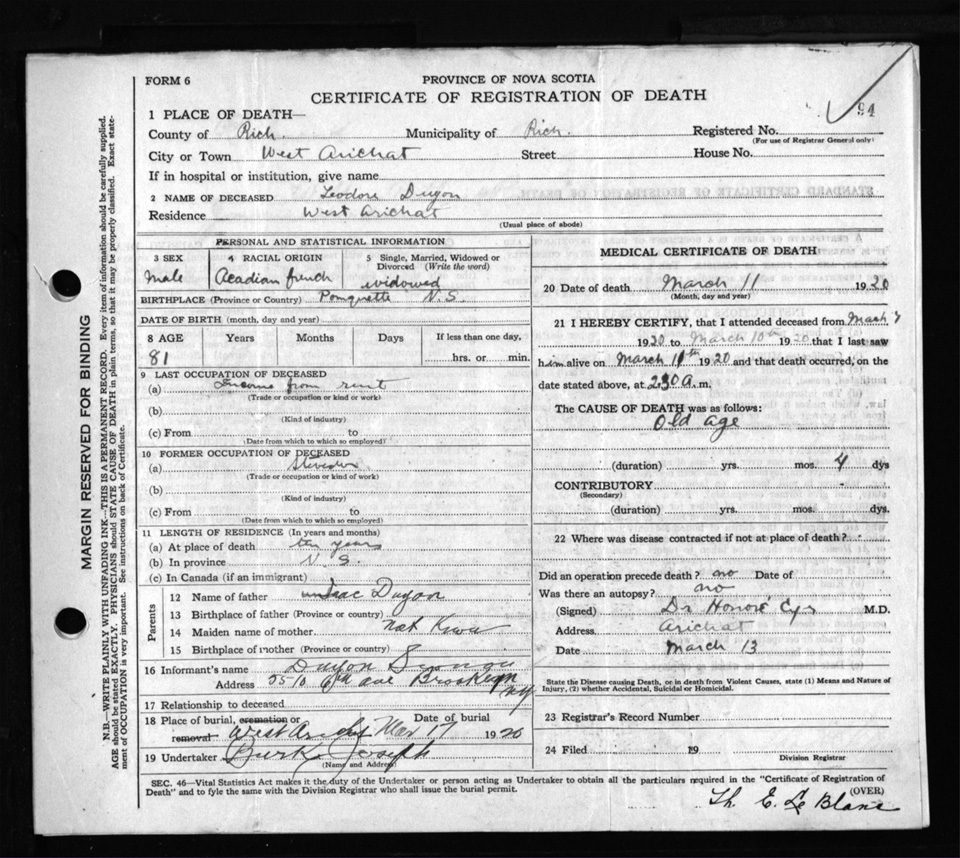 FORM 6
PROVINCE OF NOVA SCOTIA
CERTIFICATE OF REGISTRATION OF DEATH
94
1 PLACE OF DEATH—
County of Rich. Municipality of Rich. Registered No.
(For use of Registrar General only)
City or Town West Arichat Street House No.
If in hospital or institution, give name
2 NAME OF DECEASED Leodore Dugon
Residence West Arichat
(Usual place of abode)
PERSONAL AND STATISTICAL INFORMATION
3 SEX 4 RACIAL ORIGIN 5 Single, Married, Widowed or Divorced (Write the word)
Male Acadian french widowed
BIRTHPLACE (Province or Country) Pomquette N.S.
DATE OF BIRTH (month, day and year)
8 AGE Years Months Days If less than one day,
81 hrs. or min.
9 LAST OCCUPATION OF DECEASED
(a) Income from rent
(Trade or occupation or kind or work)
(b)
(Kind of industry)
(c) From to
(Date from which to which so employed)
10 FORMER OCCUPATION OF DECEASED
(a)
(Trade or occupation or kind of work)
(b)
(Kind of industry)
(c) From to
(Date from which to which so employed)
11 LENGTH OF RESIDENCE (In years and months)
(a) At place of death ten years
(b) In province N. S.
(c) In Canada (if an immigrant)
Parents
12 Name of father Isac Dugon
13 Birthplace of father (Province or country)
14 Maiden name of mother not
15 Birthplace of mother (Province or country)
16 Informant's name Dugon
Address 6th ave Brooklyn NY
17 Relationship to deceased
18 Place of burial, cremation or removal West Mar 17 Date of burial 1920
19 Undertaker Burk Joseph
(Name and Address)
MEDICAL CERTIFICATE OF DEATH
20 Date of death March 11 1920
(Month, day and year)
21 I HEREBY CERTIFY, that I attended deceased from
1920 to March 10th 1920 that I last saw
him alive on March 1920 and that death occurred, on the
date stated above, at 230 A. m.
The CAUSE OF DEATH was as follows:
Old age
(duration) yrs. mos. 4 dys
CONTRIBUTORY
(Secondary)
(duration) yrs. mos. dys.
22 Where was disease contracted if not at place of death?
Did an operation precede death? no Date of
Was there an autopsy? no
(Signed) Dr Honoré M.D.
Address Arichat
Date March 13
State the Disease causing Death, or in death from Violent Causes, state (1) Means and Nature of
Injury, (2) whether Accidental, Suicidal or Homicidal.
23 Registrar's Record Number
24 Filed 19
Division Registrar
SEC. 46—Vital Statistics Act makes it the duty of the Undertaker or person acting as Undertaker to obtain all the particulars required in the "Certificate of Registration of
Death" and to fyle the same with the Division Registrar who shall issue the burial permit.
(OVER)
Th. E. Le Blanc
MARGIN RESERVED FOR BINDING
N.B.—WRITE PLAINLY WITH UNFADING INK—THIS IS A PERMANENT RECORD. Every item of information should be carefully supplied.
AGE should be stated EXACTLY. PHYSICIANS should STATE CAUSE OF DEATH in plain terms, so that it may be properly classified. Exact state-
ment of OCCUPATION is very important. See instructions on back of Certificate.